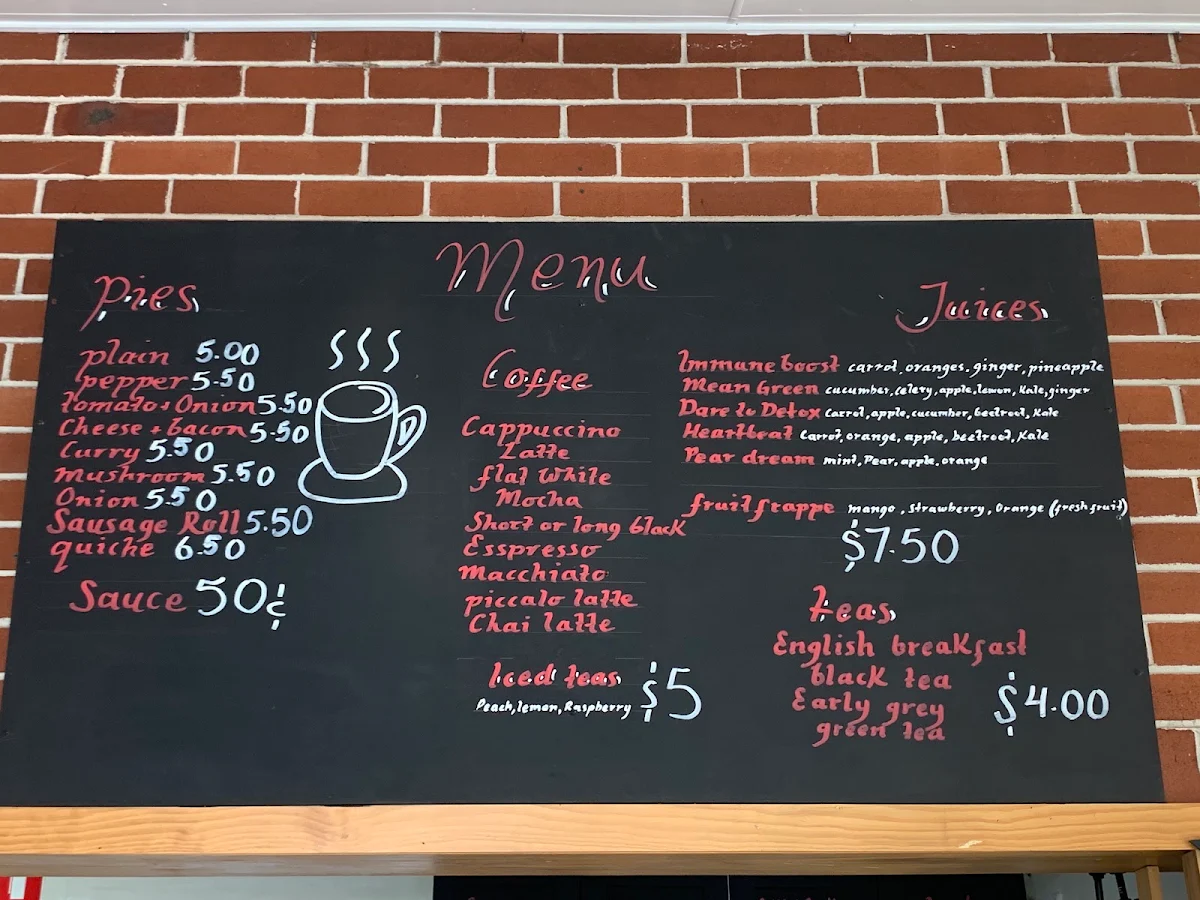 Menu
Pies
plain 5.00
pepper 5.50
tomato + Onion 5.50
Cheese + bacon 5.50
Curry 5.50
Mushroom 5.50
Onion 5.50
Sausage Roll 5.50
quiche 6.50
Sauce 50¢
Coffee
Cappuccino
Latte
flat White
Mocha
Short or long black
Esspresso
Macchiato
piccalo latte
Chai latte
Iced teas $5
Peach, lemon, Raspberry
Juices
Immune boost carrot, oranges, ginger, pineapple
Mean Green cucumber, celety, apple, lemon, Kale, ginger
Dare to Detox Carrot, apple, cucumber, beetroot, Kale
Heartbeat Carrot, orange, apple, beetroot, Kale
Pear dream mint, Pear, apple, orange
fruit frappe mango, strawberry, Orange (fresh fruit)
$7.50
teas
English breakfast
black tea
Early grey $4.00
green tea